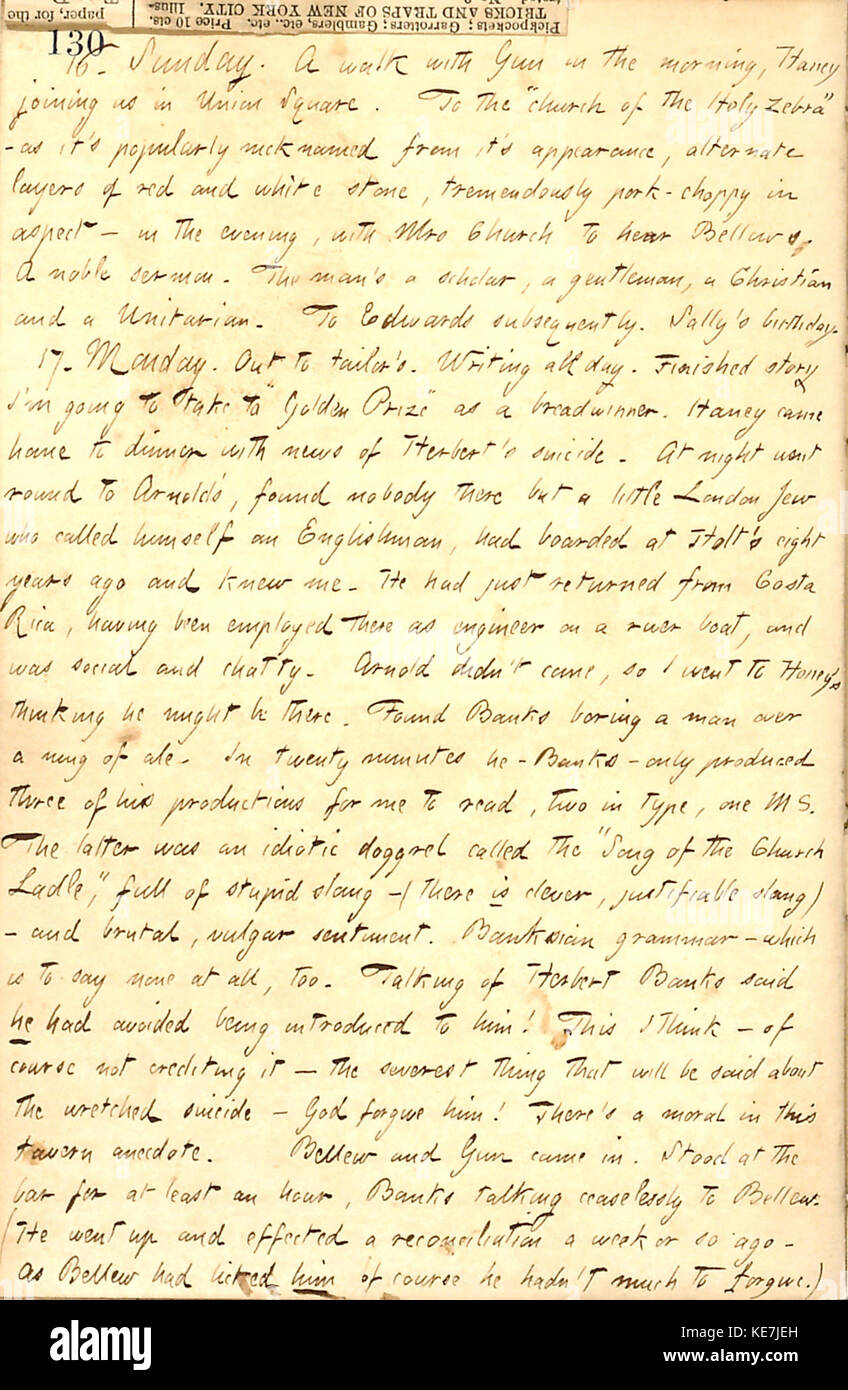 paper, for the
Pickpockets; Garrotters; Gamblers, etc., etc. Price 10 cts.
TRICKS AND TRAPS OF NEW YORK CITY. Illus-
130
16. Sunday. A walk with Gun in the morning, Haney
joining us in Union Square. To the "church of the Holy Zebra"
- as it's popularly nicknamed from it's appearance, alternate
layers of red and white stone, tremendously pork-choppy in
aspect - in the evening, with Mrs Church to hear Bellows.
A noble sermon. The man's a scholar, a gentleman, a Christian
and a Unitarian. To Edwards subsequently. Sally's birthday.
17. Monday. Out to tailor's. Writing all day. Finished story
I'm going to take to "Golden Prize" as a breadwinner. Haney came
home to dinner with news of Herbert's suicide. At night went
round to Arnold's, found nobody there but a little London Jew
who called himself an Englishman, had boarded at Holt's eight
years ago and knew me. He had just returned from Costa
Rica, having been employed there as engineer on a river boat, and
was social and chatty. Arnold didn't come, so I went to Honey's
thinking he might be there. Found Banks boring a man over
a mug of ale. In twenty minutes he - Banks - only produced
three of his productions for me to read, two in type, one MS.
The latter was an idiotic doggrel called the "Song of the Church
Ladle," full of stupid slang - (there is clever, justifiable slang)
- and brutal, vulgar sentiment. Banksian grammar - which
is to say none at all, too. Talking of Herbert Banks said
he had avoided being introduced to him! This I think - of
course not crediting it - the severest thing that will be said about
the wretched suicide - God forgive him! There's a moral in this
tavern anecdote. Bellew and Gun came in. Stood at the
bar for at least an hour, Banks talking ceaselessly to Bellew.
(He went up and effected a reconciliation a week or so ago -
as Bellew had licked him of course he hadn't much to forgive.)
alamy
Image ID: KE7JEH
www.alamy.com